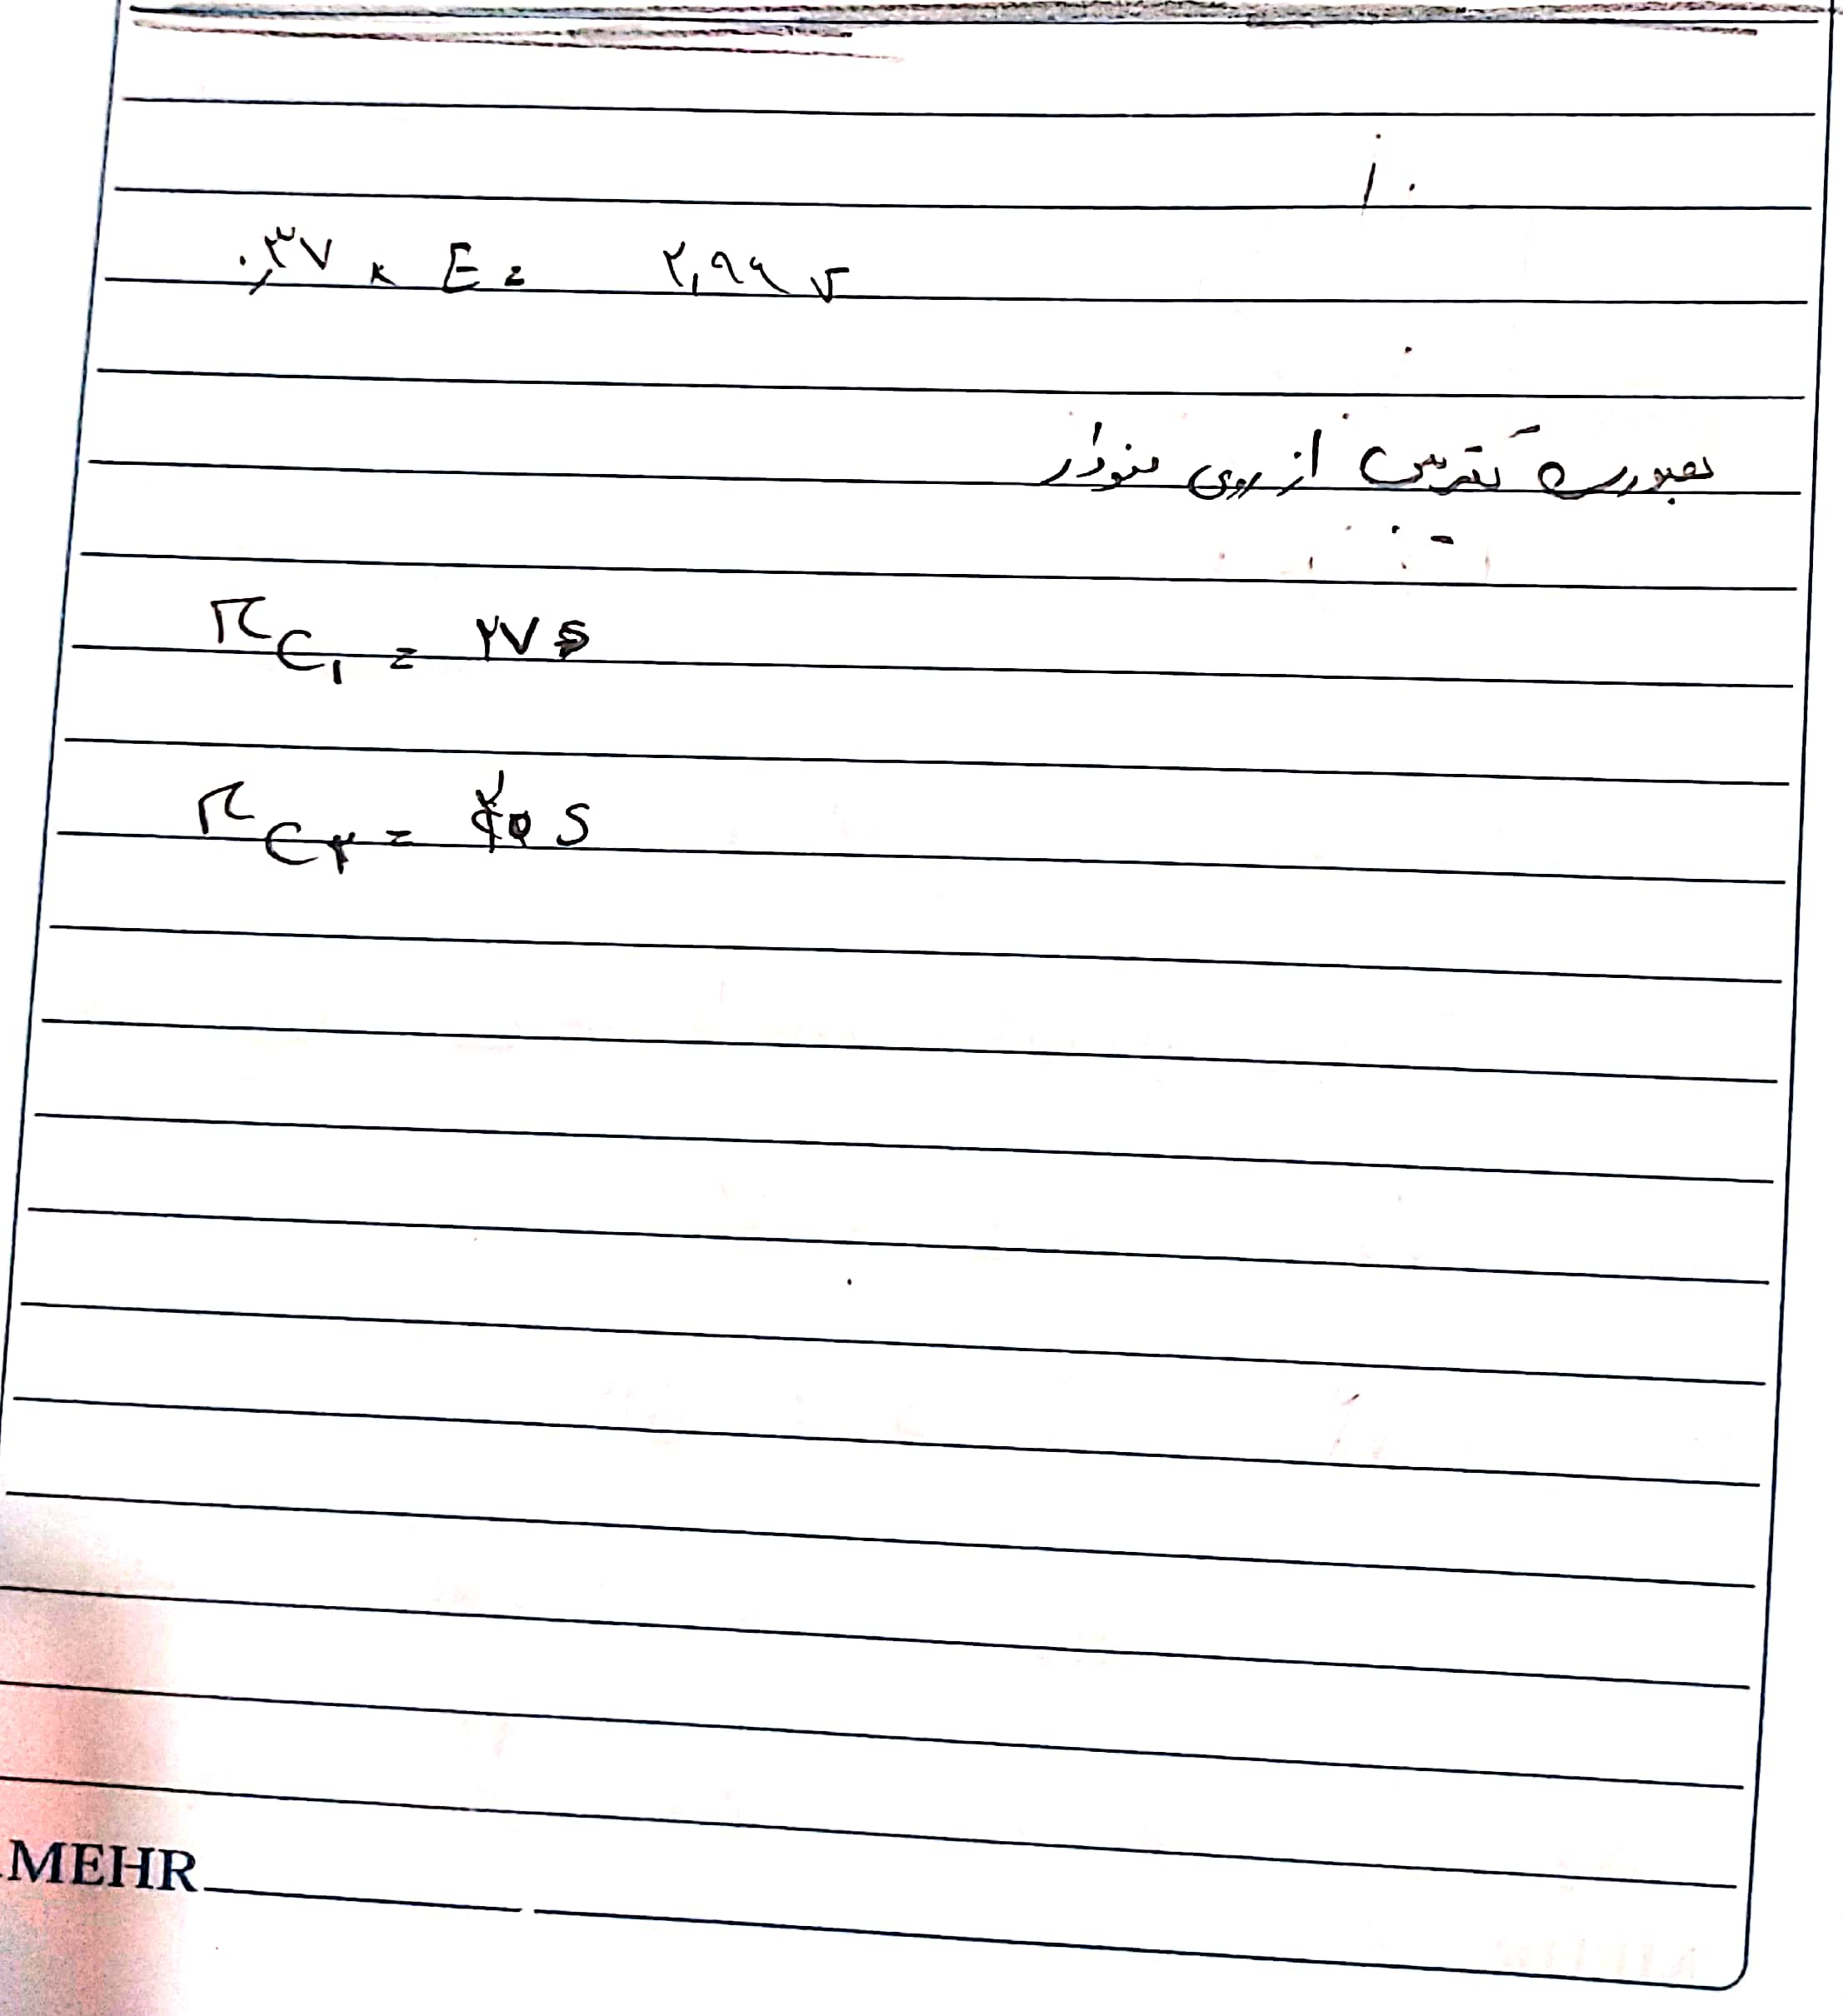 ۰,۳۷ × E = ۲,۹۶ v
بصورت تقریبی از روی نمودار
τC۱ = ۲۷ s
τC۲ = s
MEHR